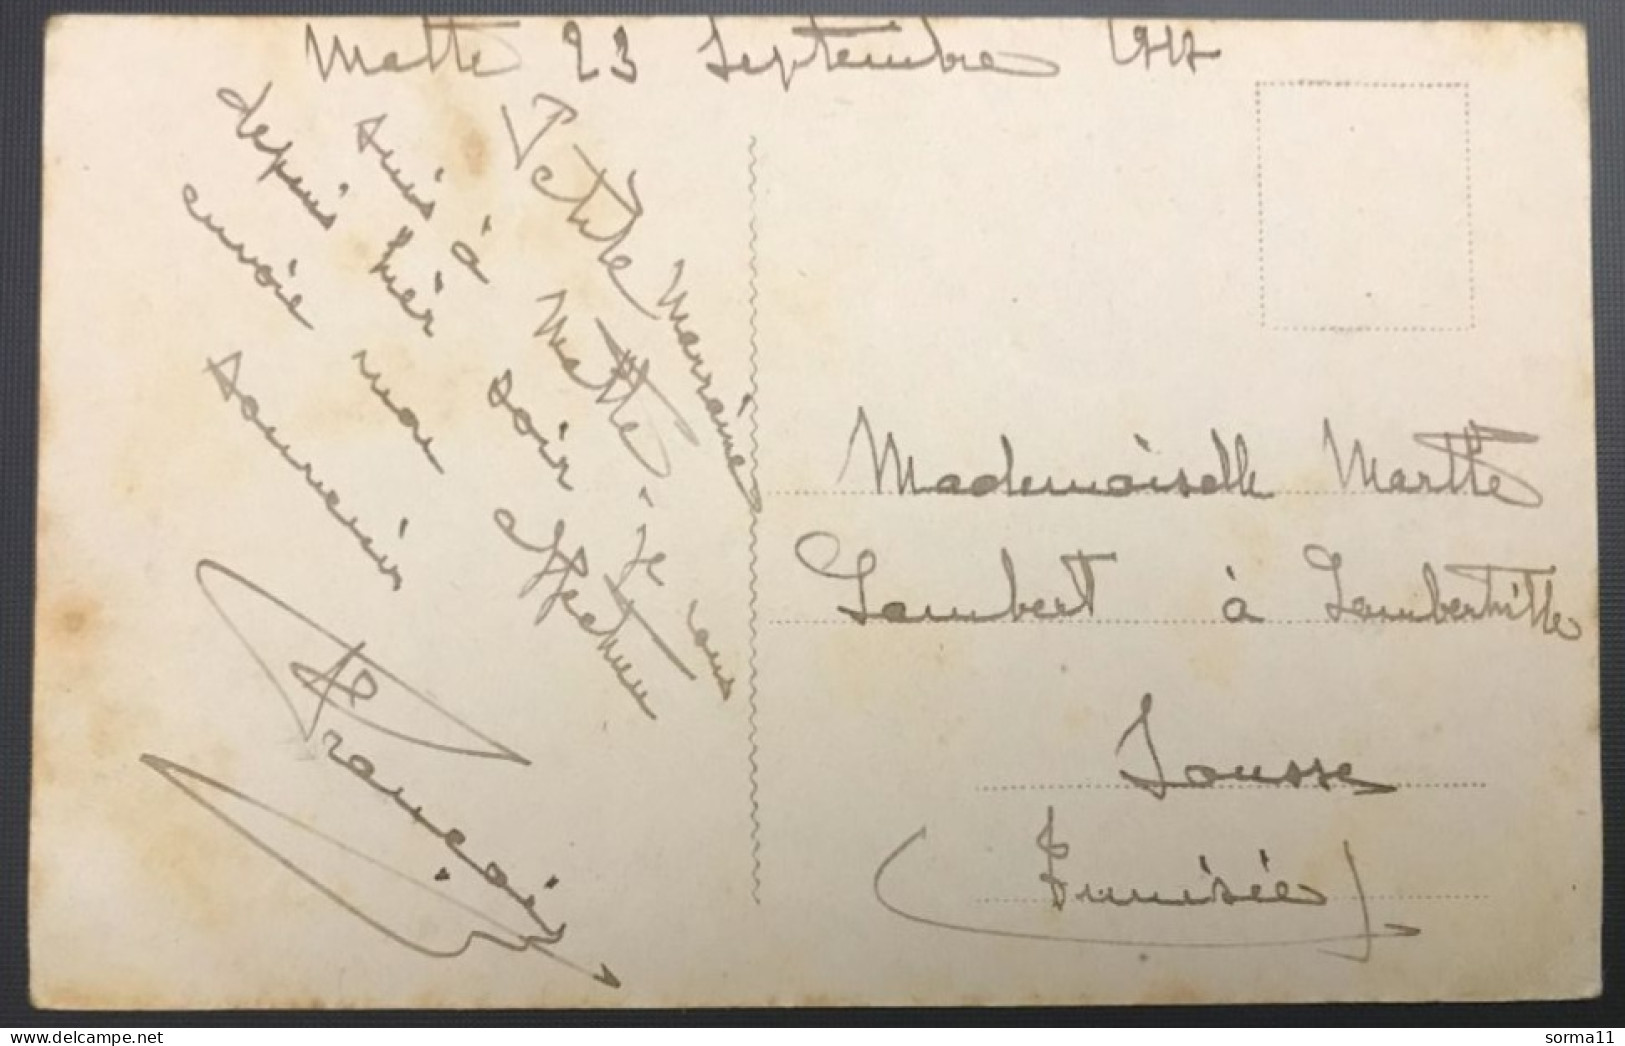 Malte 23 Septembre 1917
Petite Marraine
suis à Malte
depuis hier soir je vous
envoie mon affectueux
souvenir
François
Mademoiselle Marthe
Lambert à Lambertville
Sousse
(Tunisie)
sorma11